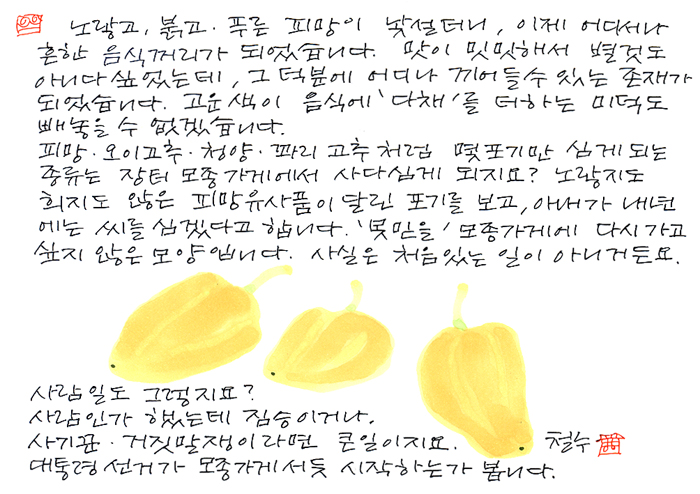 노랗고, 붉고·푸른 피망이 낯설더니, 이제 어디서나
흔한 음식거리가 되었습니다. 맛이 밋밋해서 별것도
아니다 싶었는데, 그 덕분에 어디나 끼어들수 있는 존재가
되었습니다. 고운색이 음식에 '다채'를 더하는 미덕도
빼놓을 수 없겠습니다.
피망·오이고추·청양·꽈리 고추처럼 몇포기만 심게되는
종류는 장터 모종가게에서 사다심게 되지요? 노랗지도
희지도 않은 피망유사품이 달린 포기를 보고, 아내가 내년
에는 씨를 심겠다고 합니다. '못믿을' 모종가게에 다시가고
싶지 않은 모양입니다. 사실은 처음있는 일이 아니거든요.
사람일도 그렇지요?
사람인가 했는데 짐승이거나.
사기꾼·거짓말쟁이라면 큰일이지요. 철수
대통령선거가 모종가게서듯 시작하는가 봅니다.